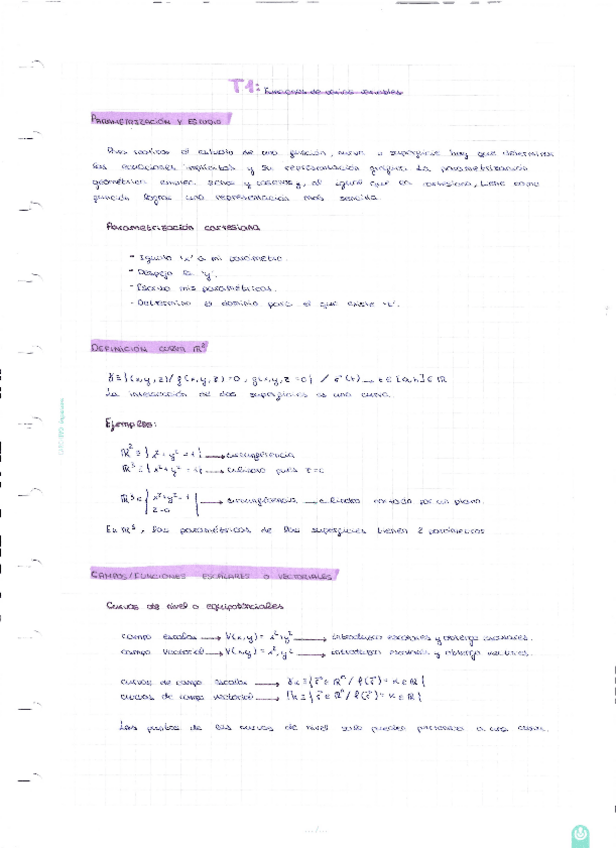 T1: Funciones de varias variables
PARAMETRIZACIÓN Y ESTUDIO
Para realizar el cálculo de una función, curva o superficie hay que determinar
sus ecuaciones implícitas y su representación gráfica. La parametrización
geométrica emplea senos y cosenos, al igual que en cartesiana, tiene como
función lograr una representación más sencilla.
Parametrización cartesiana
- Igualo 'x' a mi parámetro.
- Despejo la 'y'.
- Escribo mis paramétricas.
- Determino el dominio para el que existe 't'.
DEFINICIÓN CURVA R³
γ ≡ {(x,y,z) / f(x,y,z) = 0, g(x,y,z = 0} / σ(t) → t ∈ [a,b] ∈ R
La intersección de dos superficies es una curva.
Ejemplos:
R² ≡ { x² + y² = 1 } → circunferencia
R³ ≡ { x² + y² = 1 } → cilindro pues
R³ ≡ { x² + y² = 1 z = 0 } → circunferencia → cilindro cortado por un plano.
En R³, las paramétricas de las superficies tienen 2 parámetros
CAMPOS/FUNCIONES ESCALARES O VECTORIALES
Curvas de nivel o equipotenciales
campo escalar → V(x,y) = x² + y² → introduzco escalares y obtengo escalares.
campo vectorial → V(x,y) = x², y² → introduzco y obtengo vectores.
curvas de campo escalar → γk ≡ { r ∈ Rⁿ / f(r) = k ∈ R }
curvas de campo vectorial → { r ∈ Rⁿ / f(r) = k ∈ R }
Los puntos de las curvas de nivel solo pueden pertenecer a una curva.